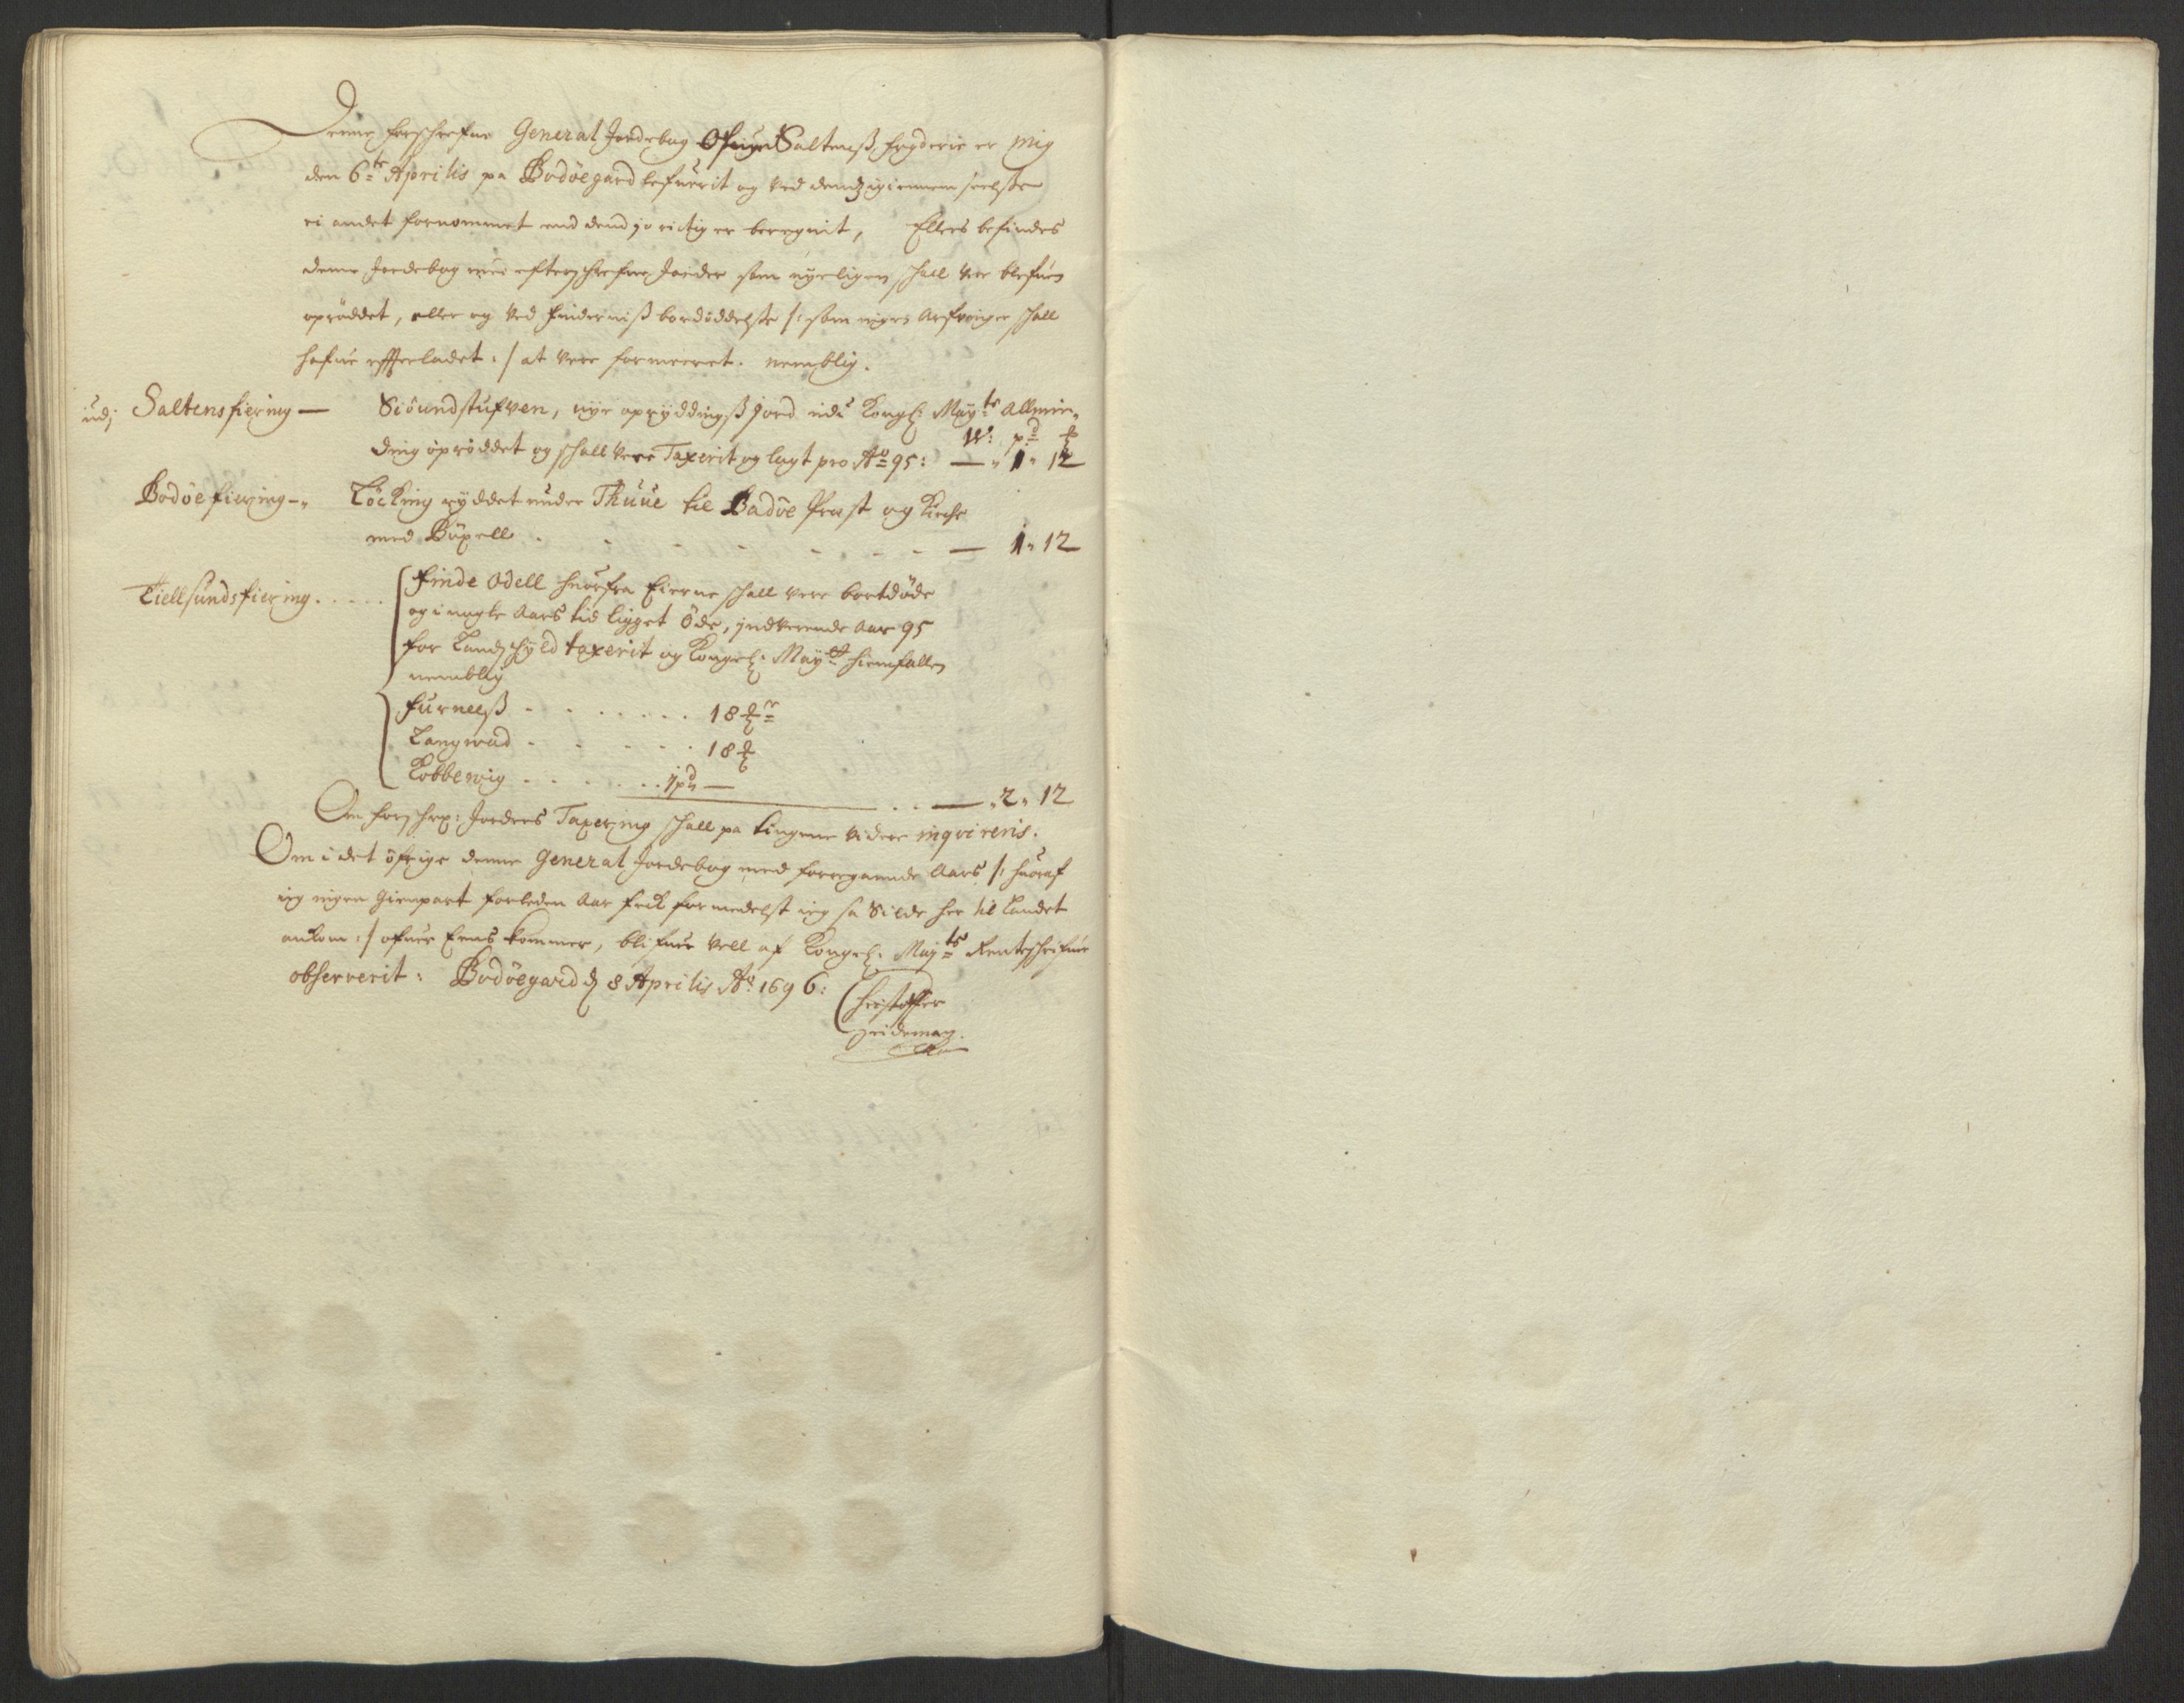 Denne forschrefne General Jordebog Ofuer Saltenß fogderie er mig
den 6te Aprilis pa Bodöegard lefuerit og ved dendz igiennem seelße
ei andet fornommet end dend jo rictig er beregnit, Ellers befindes
denne Jordebog med efterschrefne Jorder som nyeligen schall vere blefuen
oprÿddet, eller og ved bortdöddelße /: som ingen Arfvinger schall
hafue effterladet :/ at vere formeeret. nemblig.
udj Saltens fiering — Siöundstufven, nye oprÿddingß Jord udi Kongl: Mayts Allmin-
ding oprÿddet og schall vere Taxerit og lagt pro Ao 95: — W: pd ℔ — „ 1 „ 12
Bodöe fiering - „ Löcking rÿddet under Thuue til Badöe Prest og Kirche
med Böxell . - - - - - - — 1 „ 12
Tiellsunds fiering . . . . . Finde Odell huorfra Eierne schall vere bortdöde
og i nogle Aars tid ligget Öde, indverende Aar 95
for Landschyld taxerit og Kongel: Mayet hiemfallen
nemblig
Furneeß - - . . . . . 18 ℔r
Langwad - - - - . 18 ℔
Kobbewig . . . . . . . 1 pd „ —
. . — „ 2 „ 12
Om forschrz: Jorders Taxering schall pa tingene videre inqvireris.
Om i det öfrige denne General Jordebog med forregaaende Aars /: huoraf
ieg ingen Gienpart forleden Aar fick formedelst ieg sa Silde her til Landet
ankom :/ ofuer Eens kommer, blifuer vell af Kongel: Mayts Renteschrifuer
observerit: Bodöegard d 8 Aprilis Ao 1696:
Christoffer